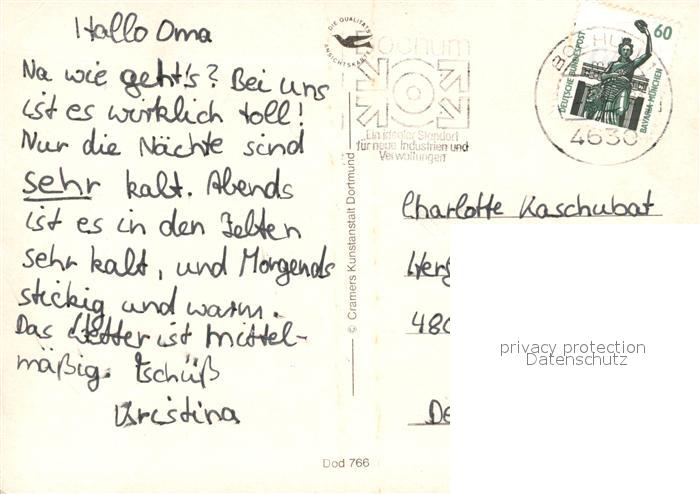 Hallo Oma
Na wie geht's? Bei uns
ist es wirklich toll!
Nur die Nächte sind
sehr kalt. Abends
ist es in den Zelten
sehr kalt, und Morgends
stickig und warm.
Das Wetter ist mittel-
mäßig. Tschüß
Kristina
DIE QUALITÄTS
ANSICHTSKARTE
Bochum
Ein idealer Standort
für neue Industrien und
Verwaltungen
© Cramers Kunstanstalt Dortmund
Dod 766
BOCHUM
4630
60
DEUTSCHE BUNDESPOST
BAVARIA MÜNCHEN
Charlotte Kaschubat
480
privacy protection
Datenschutz